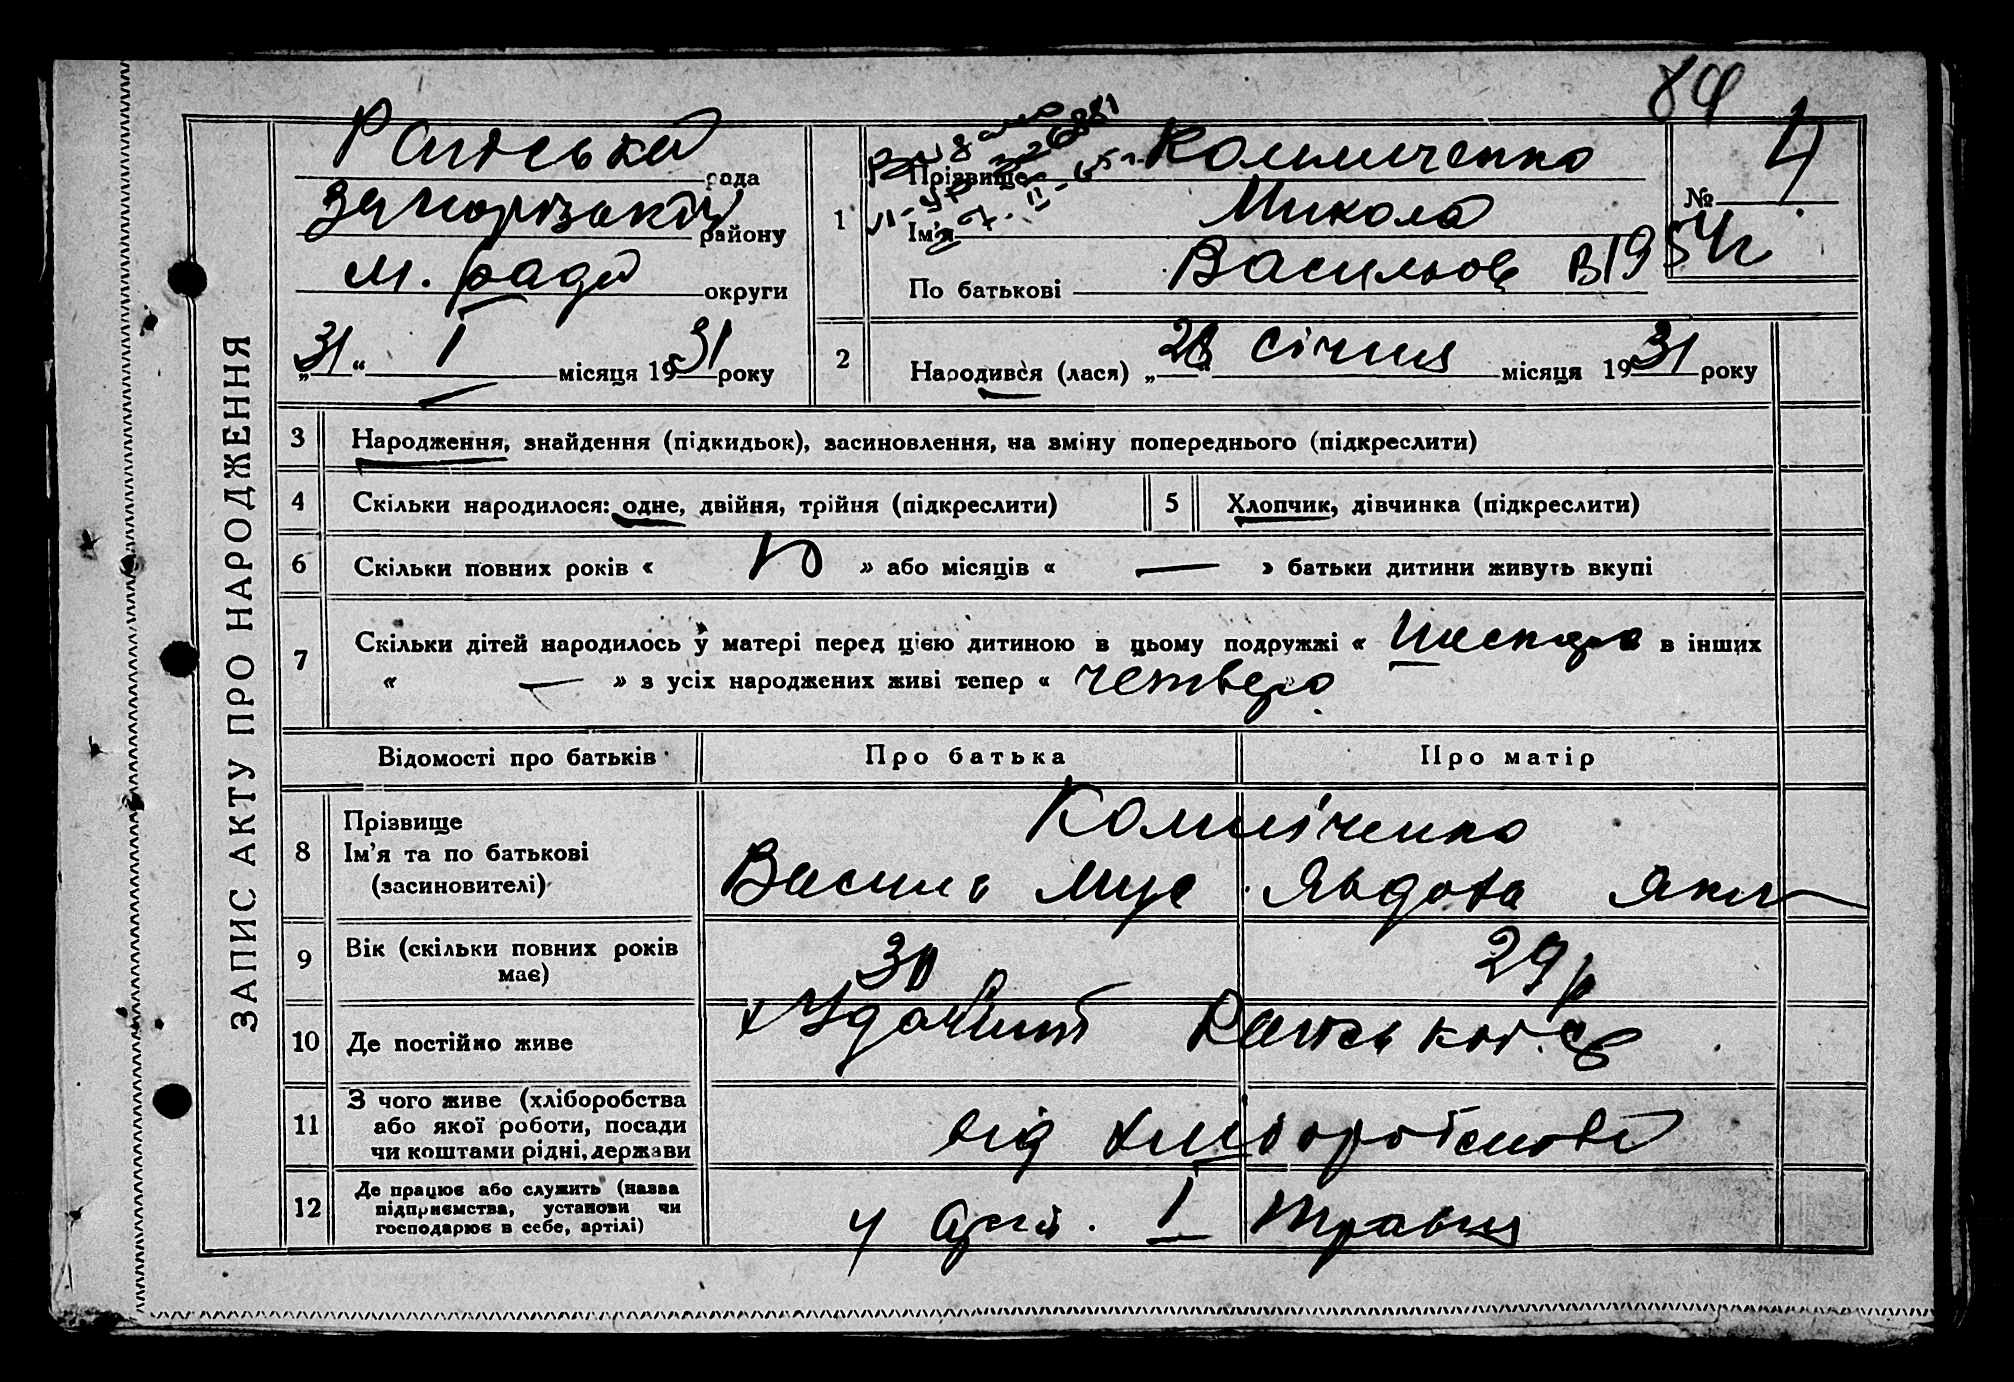 84
рада
Запорізької району
м. ради округи
„31“ I місяця 1931 року
ЗАПИС АКТУ ПРО НАРОДЖЕННЯ
№ 4
1
Прізвище Коломіченко
Ім'я Микола
По батькові Васильов В 1954 г
2 Народився (лася) „28“ січня місяця 1931 року
3 Народження, знайдення (підкидьок), засиновлення, на зміну попереднього (підкреслити)
4 Скільки народилося: одне, двійня, трійня (підкреслити)
5 Хлопчик, дівчинка (підкреслити)
6 Скільки повних років « 10 » або місяців « — » батьки дитини живуть вкупі
7 Скільки дітей народилось у матері перед цією дитиною в цьому подружжі « Шестеро в інших
« — » з усіх народжених живі тепер « четверо
Відомості про батьків Про батька Про матір
8 Прізвище
Ім'я та по батькові
(засиновителі)
Коломіченко
Василь Мус Явдоха Яким
9 Вік (скільки повних років має)
30 29 р
10 Де постійно живе
с/ради
11 З чого живе (хліборобства
або якої роботи, посади
чи коштами рідні, держави
від хліборобства
12 Де працює або служить (назва
підприємства, установи чи
господарює в себе, артілі)
у арті. 1 Травня